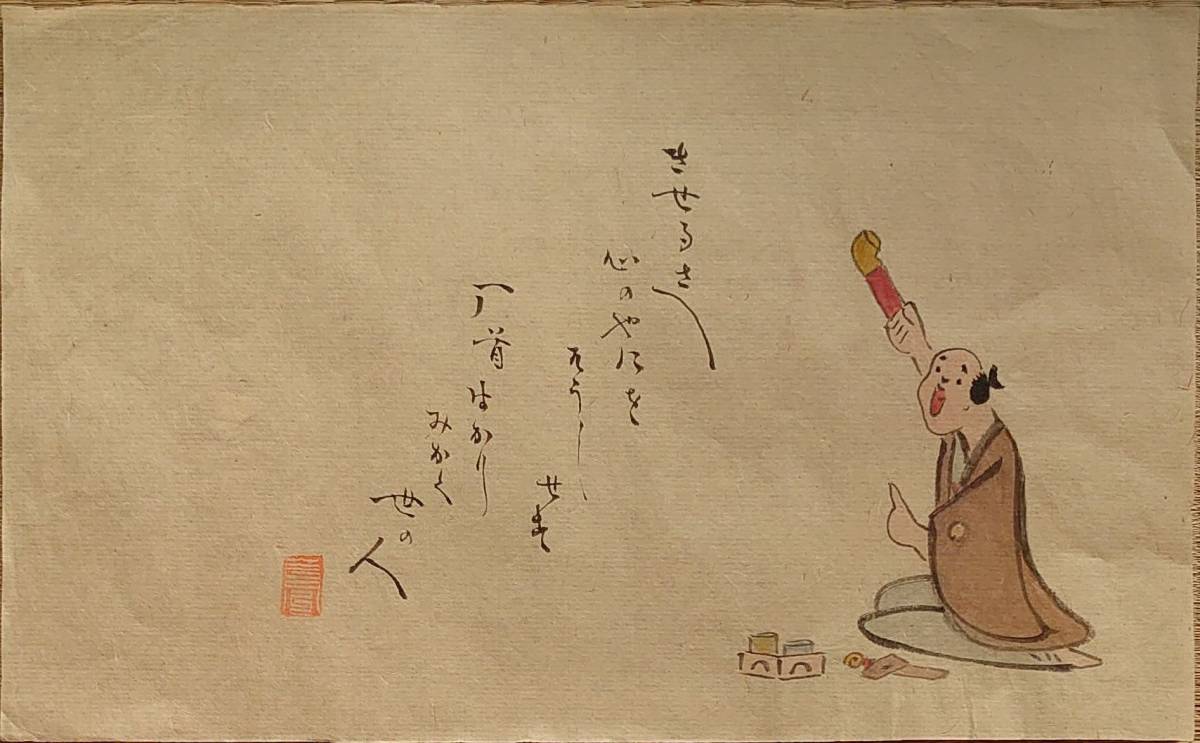 きせるさへ
心のやにを
そうし
せす
厂首はかり
みかく
世の
人